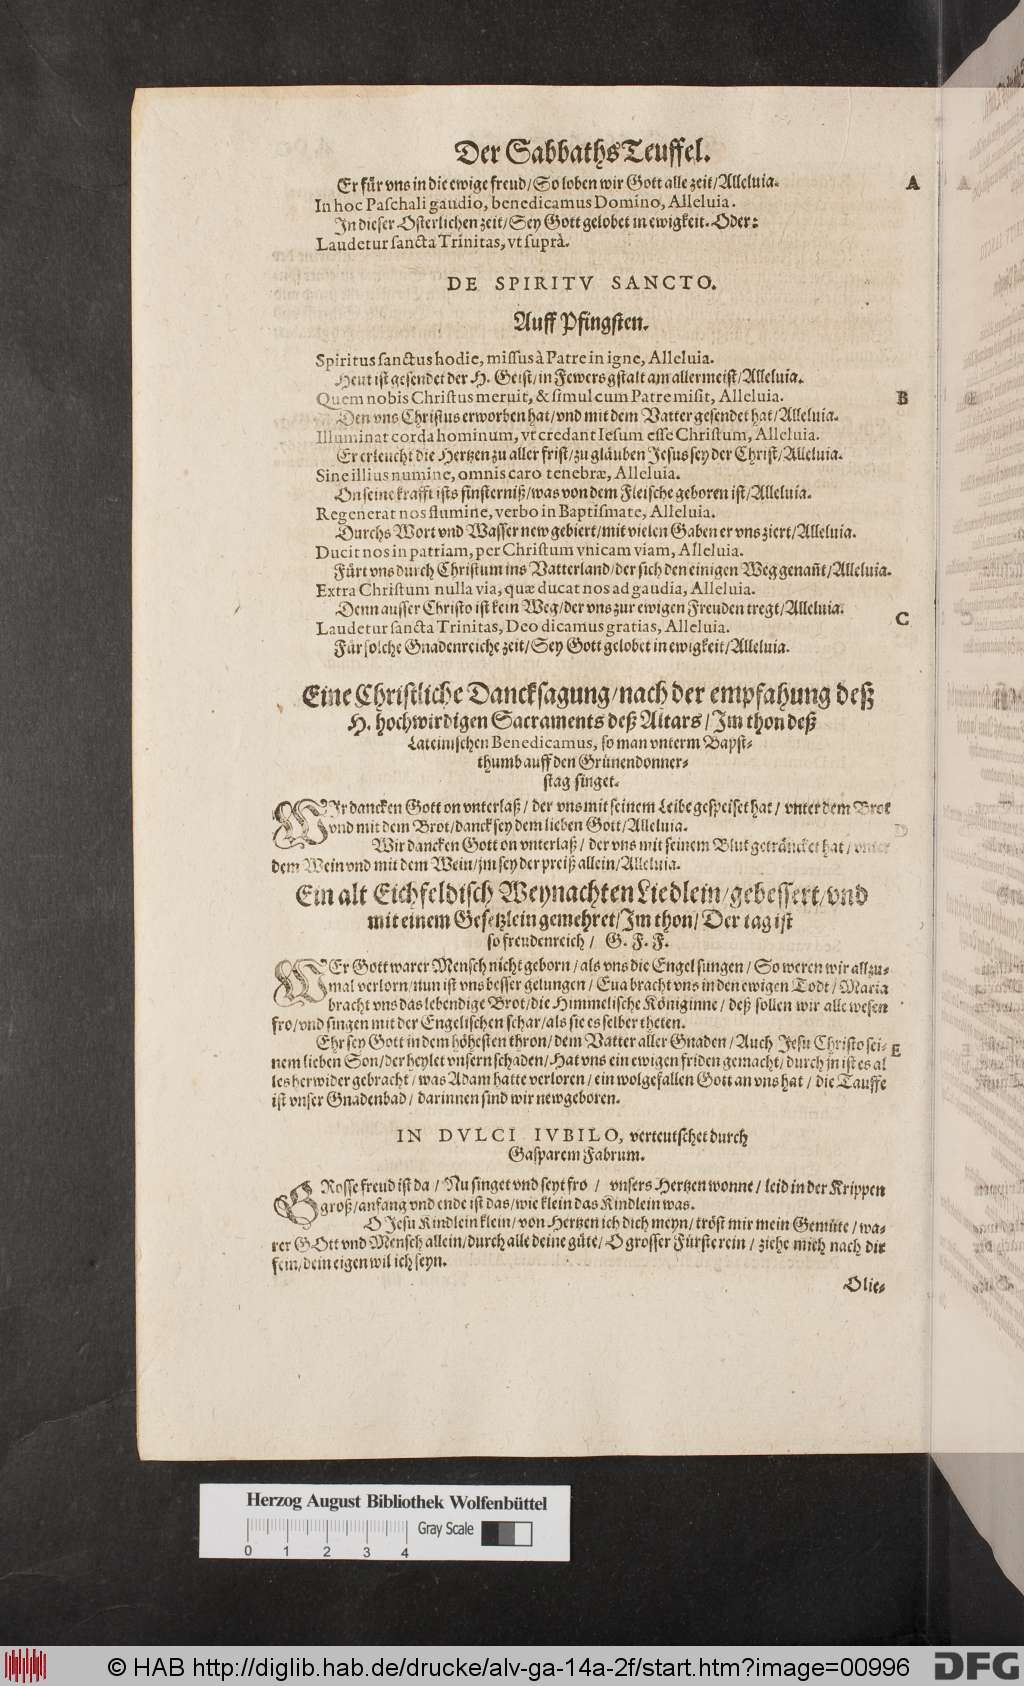 Der Sabbaths Teuffel.
Er für vns in die ewige freud/So loben wir Gott alle zeit/Alleluia.
A
In hoc Paschali gaudio, benedicamus Domino, Alleluia.
In dieser Osterlichen zeit/Sey Gott gelobet in ewigkeit. Oder:
Laudetur sancta Trinitas, vt suprà.
DE SPIRITV SANCTO.
Auff Pfingsten.
Spiritus sanctus hodie, missus à Patre in igne, Alleluia.
Heut ist gesendet der H. Geist/in Fewers gstalt am allermeist/Alleluia.
Quem nobis Christus meruit, & simul cum Patre misit, Alleluia.
B
Den vns Christus erworben hat/vnd mit dem Vatter gesendet hat/Alleluia.
Illuminat corda hominum, vt credant Iesum esse Christum, Alleluia.
Er erleucht die Hertzen zu aller frist/zu glauben Jesus sey der Christ/Alleluia.
Sine illius numine, omnis caro tenebræ, Alleluia.
On seine krafft ists finsterniß/was von dem Fleische geboren ist/Alleluia.
Regenerat nos flumine, verbo in Baptismate, Alleluia.
Durchs Wort vnd Wasser new gebiert/mit vielen Gaben er vns ziert/Alleluia.
Ducit nos in patriam, per Christum vnicam viam, Alleluia.
Fürt vns durch Christum ins Vatterland/der sich den einigen Weg genañt/Alleluia.
Extra Christum nulla via, quæ ducat nos ad gaudia, Alleluia.
Denn ausser Christo ist kein Weg/der vns zur ewigen Freuden tregt/Alleluia.
C
Laudetur sancta Trinitas, Deo dicamus gratias, Alleluia.
Für solche Gnadenreiche zeit/Sey Gott gelobet in ewigkeit/Alleluia.
Eine Christliche Dancksagung/nach der empfahung deß
H. hochwirdigen Sacraments deß Altars/Im thon deß
Lateinischen Benedicamus, so man vnterm Bapst-
thumb auff den Grünendonner-
stag singet.
WIr dancken Gott on vnterlaß/ der vns mit seinem Leibe gespeiset hat/ vnter dem Brot
vnd mit dem Brot/danck sey dem lieben Gott/Alleluia.
D
Wir dancken Gott on vnterlaß/ der vns mit seinem Blut geträncket hat/ vnter
dem Wein vnd mit dem Wein/jm sey der preiß allein/Alleluia.
Ein alt Eichfeldisch Weynachten Liedlein/gebessert/vnd
mit einem Gesetzlein gemehret/Im thon/ Der tag ist
so freudenreich/ G. F. F.
WEr Gott warer Mensch nicht geborn/als vns die Engel sungen/ So weren wir allzu-
mal verlorn/nun ist vns besser gelungen/ Eua bracht vns in den ewigen Todt/ Maria
bracht vns das lebendige Brot/die Himmelische Königinne/ deß sollen wir alle wesen
fro/vnd singen mit der Engelischen schar/als sie es selber theten.
Ehr sey Gott in dem höhesten thron/dem Vatter aller Gnaden/Auch Jesu Christo sei-
E
nem lieben Son/der heylet vnsern schaden/Hat vns ein ewigen friden gemacht/durch jn ist es al
les herwider gebracht/was Adam hatte verloren/ein wolgefallen Gott an vns hat/ die Tauffe
ist vnser Gnadenbad/ darinnen sind wir new geboren.
IN DVLCI IVBILO, verteutschet durch
Gasparem Fabrum.
GRosse freud ist da/ Nu singet vnd seyt fro/ vnsers Hertzen wonne/ leid in der Krippen
groß/anfang vnd ende ist das/wie klein das Kindlein was.
O Jesu Kindlein klein/von Hertzen ich dich meyn/tröst mir mein Gemüte/wa-
rer GOtt vnd Mensch allein/durch alle deine güte/O grosser Fürste rein/ ziehe mich nach dir
fein/dein eigen wil ich seyn.
O lie-
Herzog August Bibliothek Wolfenbüttel
0 1 2 3 4
Gray Scale
© HAB http://diglib.hab.de/drucke/alv-ga-14a-2f/start.htm?image=00996
DFG